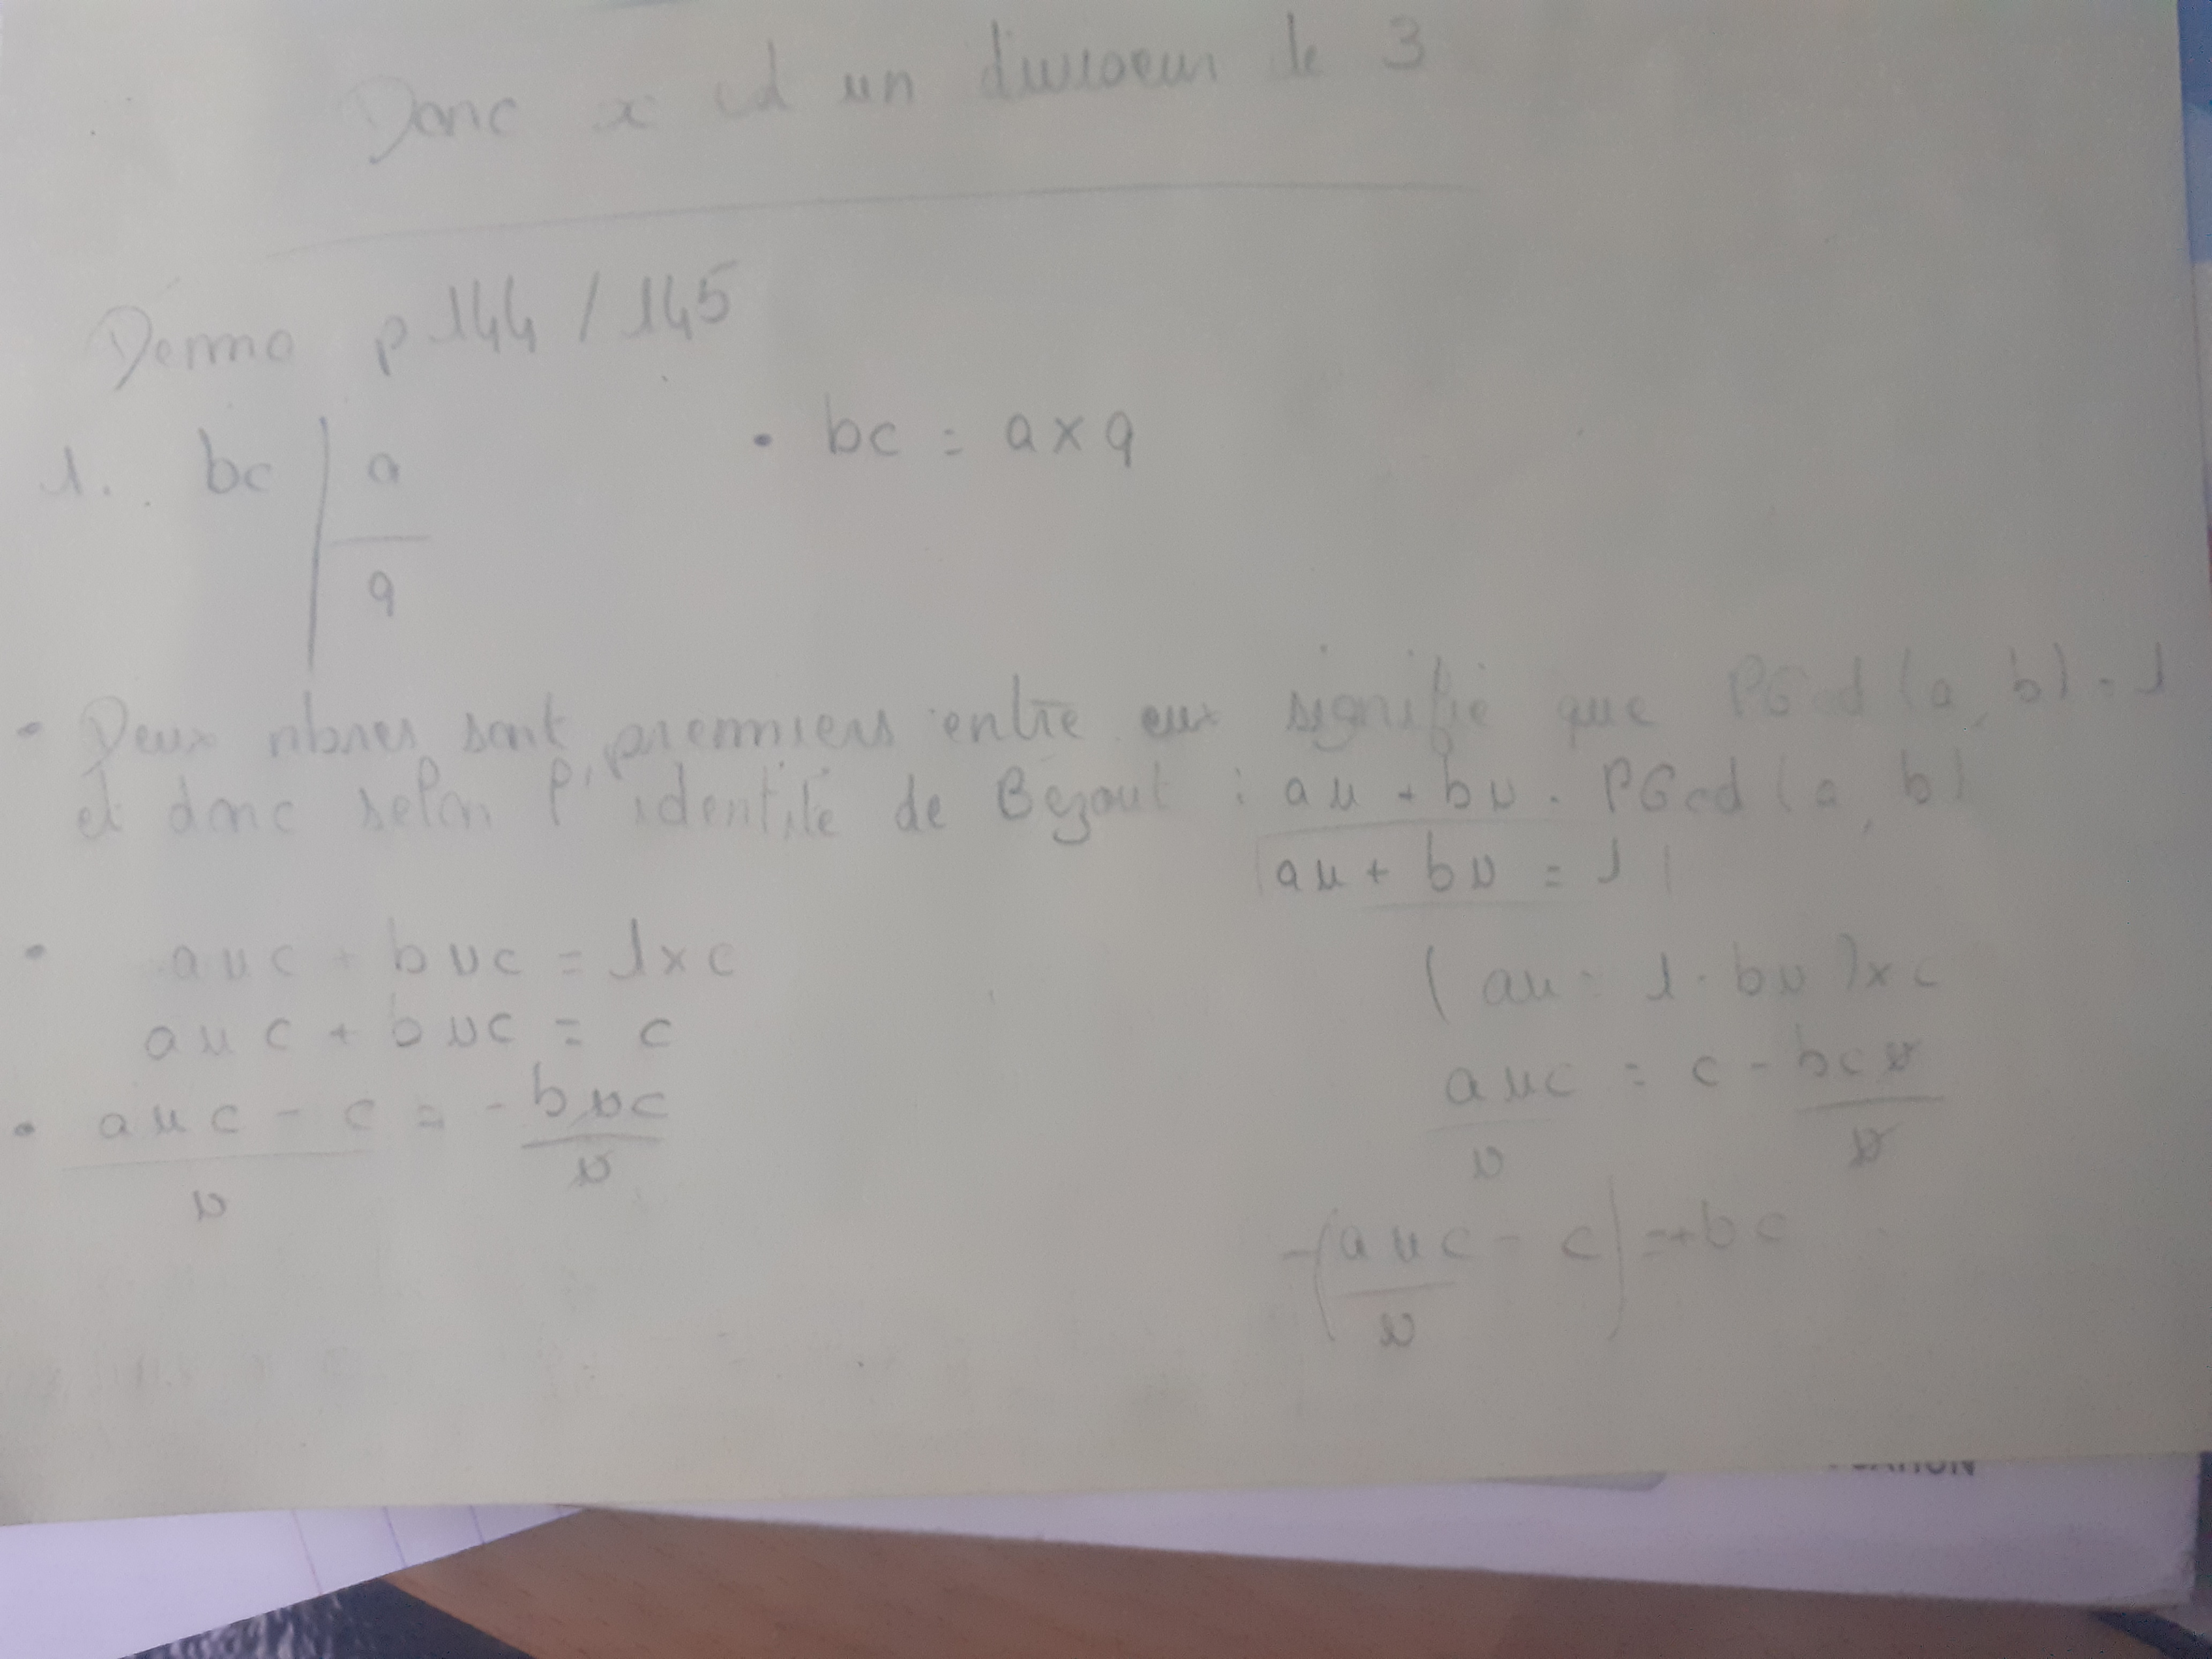 Donc x est un diviseur de 3
Démo p 144 / 145
1. bc | a
q
• bc = a x q
• Deux nbres sont premiers entre eux signifie que PGcd (a, b) = 1
et donc selon l'identité de Bézout : au + bv = PGcd (a, b)
au + bv = 1
• auc + bvc = 1 x c
auc + bvc = c
• auc - c = - bvc
v v
(au = 1 - bv) x c
auc = c - bcv
v v
-(auc - c) = + bc
v